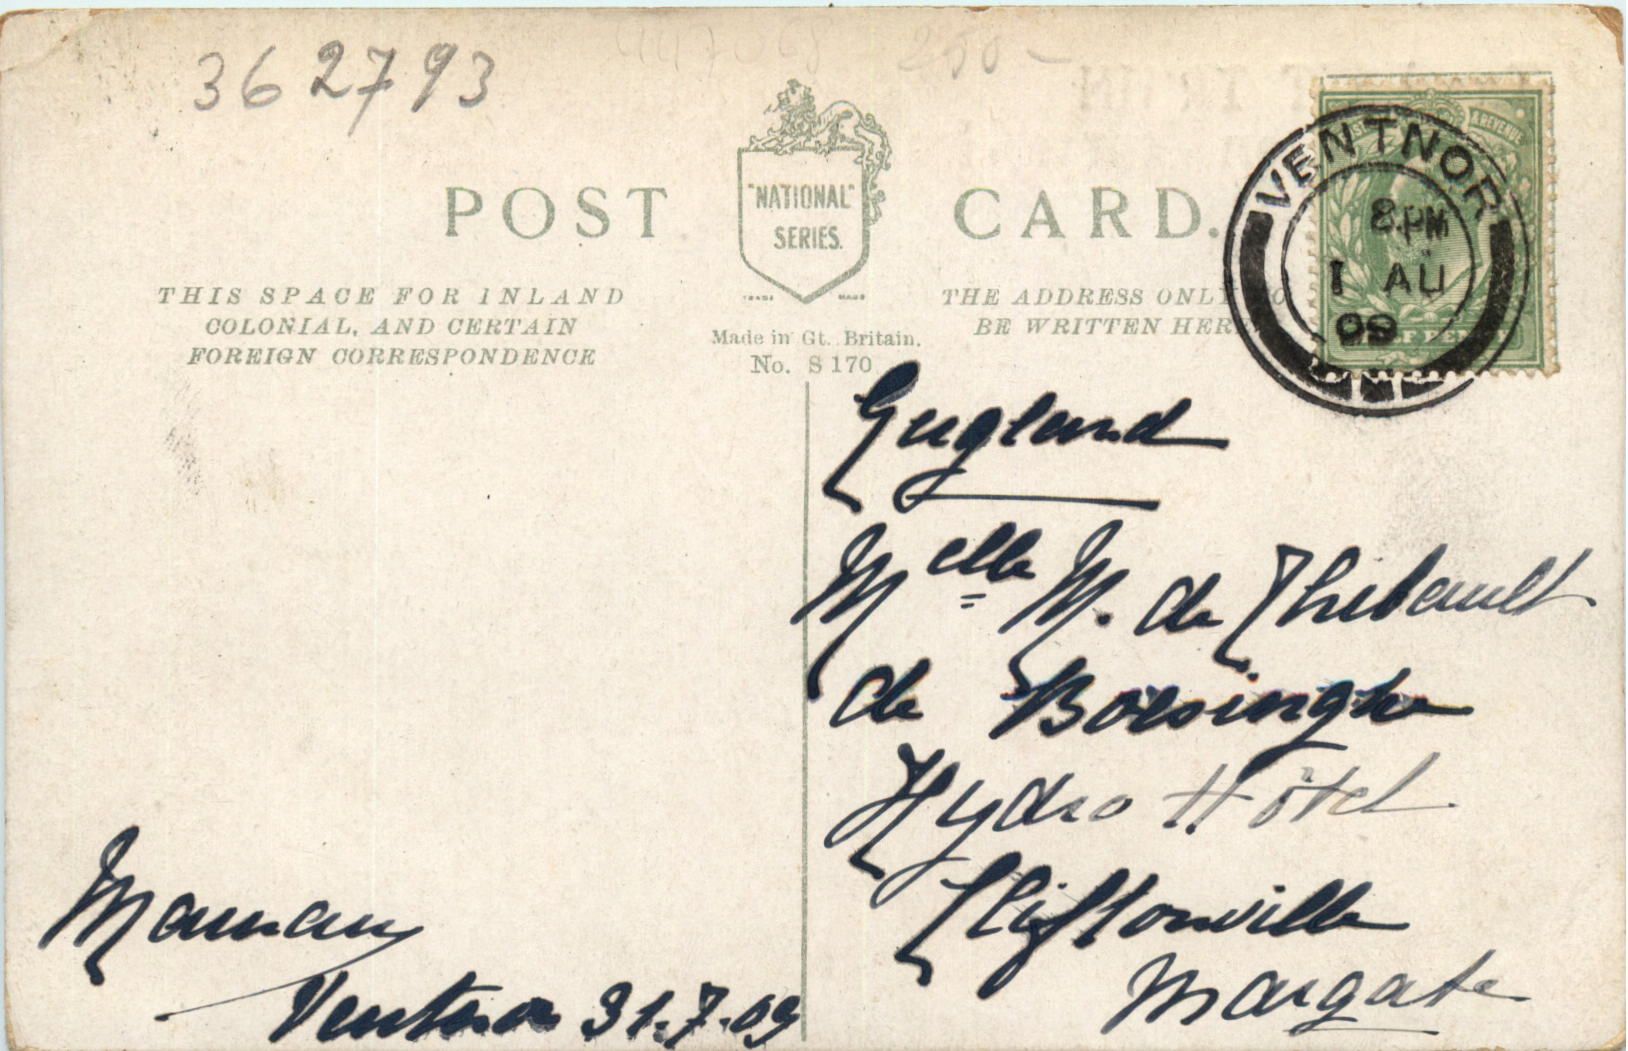 362793
250-
POST CARD.
"NATIONAL"
SERIES.
TRADE MARK
THIS SPACE FOR INLAND
COLONIAL, AND CERTAIN
FOREIGN CORRESPONDENCE
Made in Gt. Britain.
No. S 170
THE ADDRESS ONLY TO
BE WRITTEN HERE
& REVENUE
VENTNOR
8.PM
1 AU
09
HALF PENNY
England
Melle M. de Thibault
de Boesinghe
Hydro Hôtel
Cliftonville
Margate
Maman
Ventnor 31.7.09